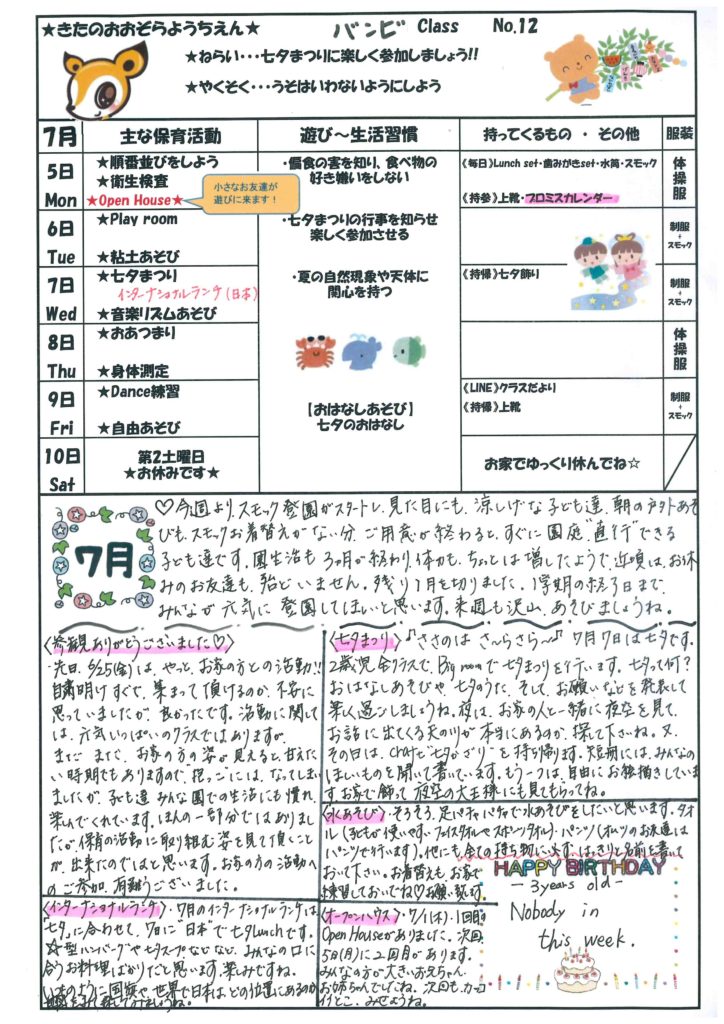 ★きたのおおぞらようちえん★
バンビ Class No.12
★ねらい・・・七夕まつりに楽しく参加しましょう!!
★やくそく・・・うそはいわないようにしよう
7月 主な保育活動 遊び～生活習慣 持ってくるもの・その他 服装
5日 Mon
★順番並びをしよう
★衛生検査
★Open House★
小さなお友達が
遊びに来ます！
・偏食の害を知り、食べ物の
好き嫌いをしない
《毎日》Lunch set・歯みがきset・水筒・スモック
《持参》上靴・プロミスカレンダー
体操服
6日 Tue
★Play room
★粘土あそび
・七夕まつりの行事を知らせ
楽しく参加させる
制服+スモック
7日 Wed
★七夕まつり
インターナショナルランチ(日本)
★音楽リズムあそび
・夏の自然現象や天体に
関心を持つ
《持帰》七夕飾り
制服+スモック
8日 Thu
★おあつまり
★身体測定
体操服
9日 Fri
★Dance練習
★自由あそび
【おはなしあそび】
七夕のおはなし
《LINE》クラスだより
《持帰》上靴
制服+スモック
10日 Sat
第2土曜日
★お休みです★
お家でゆっくり休んでね☆
7月
♡今週より、スモック登園がスタートし、見た目にも、涼しげな子ども達。朝の戸外あそ
びも、スモックお着替えがない分、ご用意が終わると、すぐに園庭“直行”できる
子ども達です。園生活も3ヶ月が終わり、体力も、ちょっとは増したようで近頃は、お休
みのお友達も、殆どいません。残り1月を切りました。1学期の終了日まで、
みんなが元気に登園してほしいと思います。来週も沢山、あそびましょうね。
〈参観ありがとうございました♡〉
先日、6/25(金)は、やっと、お家の方との活動!!
自粛明けすぐで、集まって頂けるのか、不安に
思っていましたが、良かったです。活動に関して
は、元気いっぱいのクラスではありますが、
まだまだ、お家の方の姿が見えると、甘えた
い時期でもありますので、抱っこには、なってしまい
ましたが、子ども達みんな園での生活にも慣れ、
楽しんでくれています。ほんの一部分ではありまし
たが保育の活動に取り組む姿を見て頂くこと
が、出来たのではと思います。お家の方の活動へ
のご参加、有難うございました。
〈七夕まつり〉♪ささのは さ～らさら～♪ 7月7日は七夕です。
2歳児全クラスで、Big roomで七夕まつりを行います。七夕って何？
おはなしあそびや、七夕のうた、そして、お願いなどを発表して
楽しく過ごしましょうね。夜は、お家の人と一緒に夜空を見て、
お話に出てくる天の川が本当にあるのか、探して下さいね。又、
その日は、“七夕かざり”を持ち帰ります。短冊には、みんなの
ほしいものを聞いて書いています。もう一つは、自由にお絵描きしていま
す。お家で飾って夜空の大王様にも見てもらってね。
〈水あそび〉そろそろ、足パチャパチャで水あそびをしたいと思います。タオ
ル(子どもが使いやすいフェイスタオルやスポーツタオル)・パンツ(オムツのお友達は
パンツで行います)。他にも全ての持ち物に必ず、はっきりと名前を書いて
おいて下さい。お着替えも、お家で
練習しておいてね♡お願い致します。
HAPPY BIRTHDAY
－3years old－
Nobody in
this week.
〈インターナショナルランチ〉・7月のインターナショナルランチは、
“七夕”に合わせて、7日に“日本”で七夕Lunchです。
☆型ハンバーグや七夕スープなどなど、みんなの口に
合うお料理ばかりだと思います。楽しみですね。
いつものように国旗や、世界で日本は、どの位置にあるのか
〈オープンハウス〉・7/1(木)・1回目の
Open Houseがありました。次回、
5日(月)に2回目があります。
みんなの方が大きいお兄ちゃん、
お姉ちゃんでしたね。次回も、カッコ
イイとこ、みせようね。